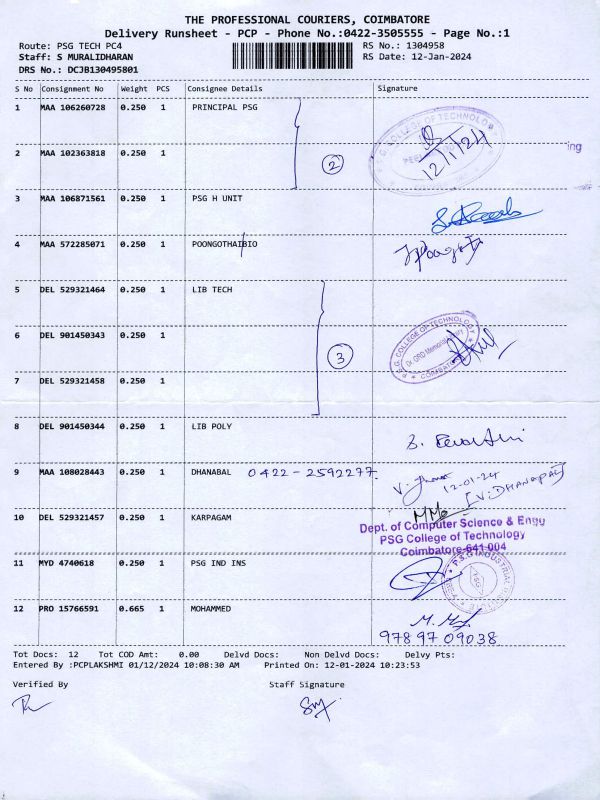 THE PROFESSIONAL COURIERS, COIMBATORE
Delivery Runsheet - PCP - Phone No.:0422-3505555 - Page No.:1
Route: PSG TECH PC4 RS No.: 1304958
Staff: S MURALIDHARAN RS Date: 12-Jan-2024
DRS No.: DCJB130495801
S No Consignment No Weight PCS Consignee Details Signature
1 MAA 106260728 0.250 1 PRINCIPAL PSG
P.S.G. COLLEGE OF TECHNOLOGY
12/1/24
2 MAA 102363818 0.250 1
2
ing
3 MAA 106871561 0.250 1 PSG H UNIT
4 MAA 572285071 0.250 1 POONGOTHAIBIO
5 DEL 529321464 0.250 1 LIB TECH
6 DEL 901450343 0.250 1
3
P.S.G. COLLEGE OF TECHNOLOGY
Dr. GRD Memorial Library
COIMBATORE
7 DEL 529321458 0.250 1
8 DEL 901450344 0.250 1 LIB POLY
9 MAA 108028443 0.250 1 DHANABAL 0422-2592277
12-01-24
[V. DHANAPAL]
10 DEL 529321457 0.250 1 KARPAGAM
Dept. of Computer Science & Engg
PSG College of Technology
Coimbatore-641 004
11 MYD 4740618 0.250 1 PSG IND INS
P.S.G. INDUSTRIAL
12 PRO 15766591 0.665 1 MOHAMMED
97897 09038
Tot Docs: 12 Tot COD Amt: 0.00 Delvd Docs: Non Delvd Docs: Delvy Pts:
Entered By :PCPLAKSHMI 01/12/2024 10:08:30 AM Printed On: 12-01-2024 10:23:53
Verified By Staff Signature